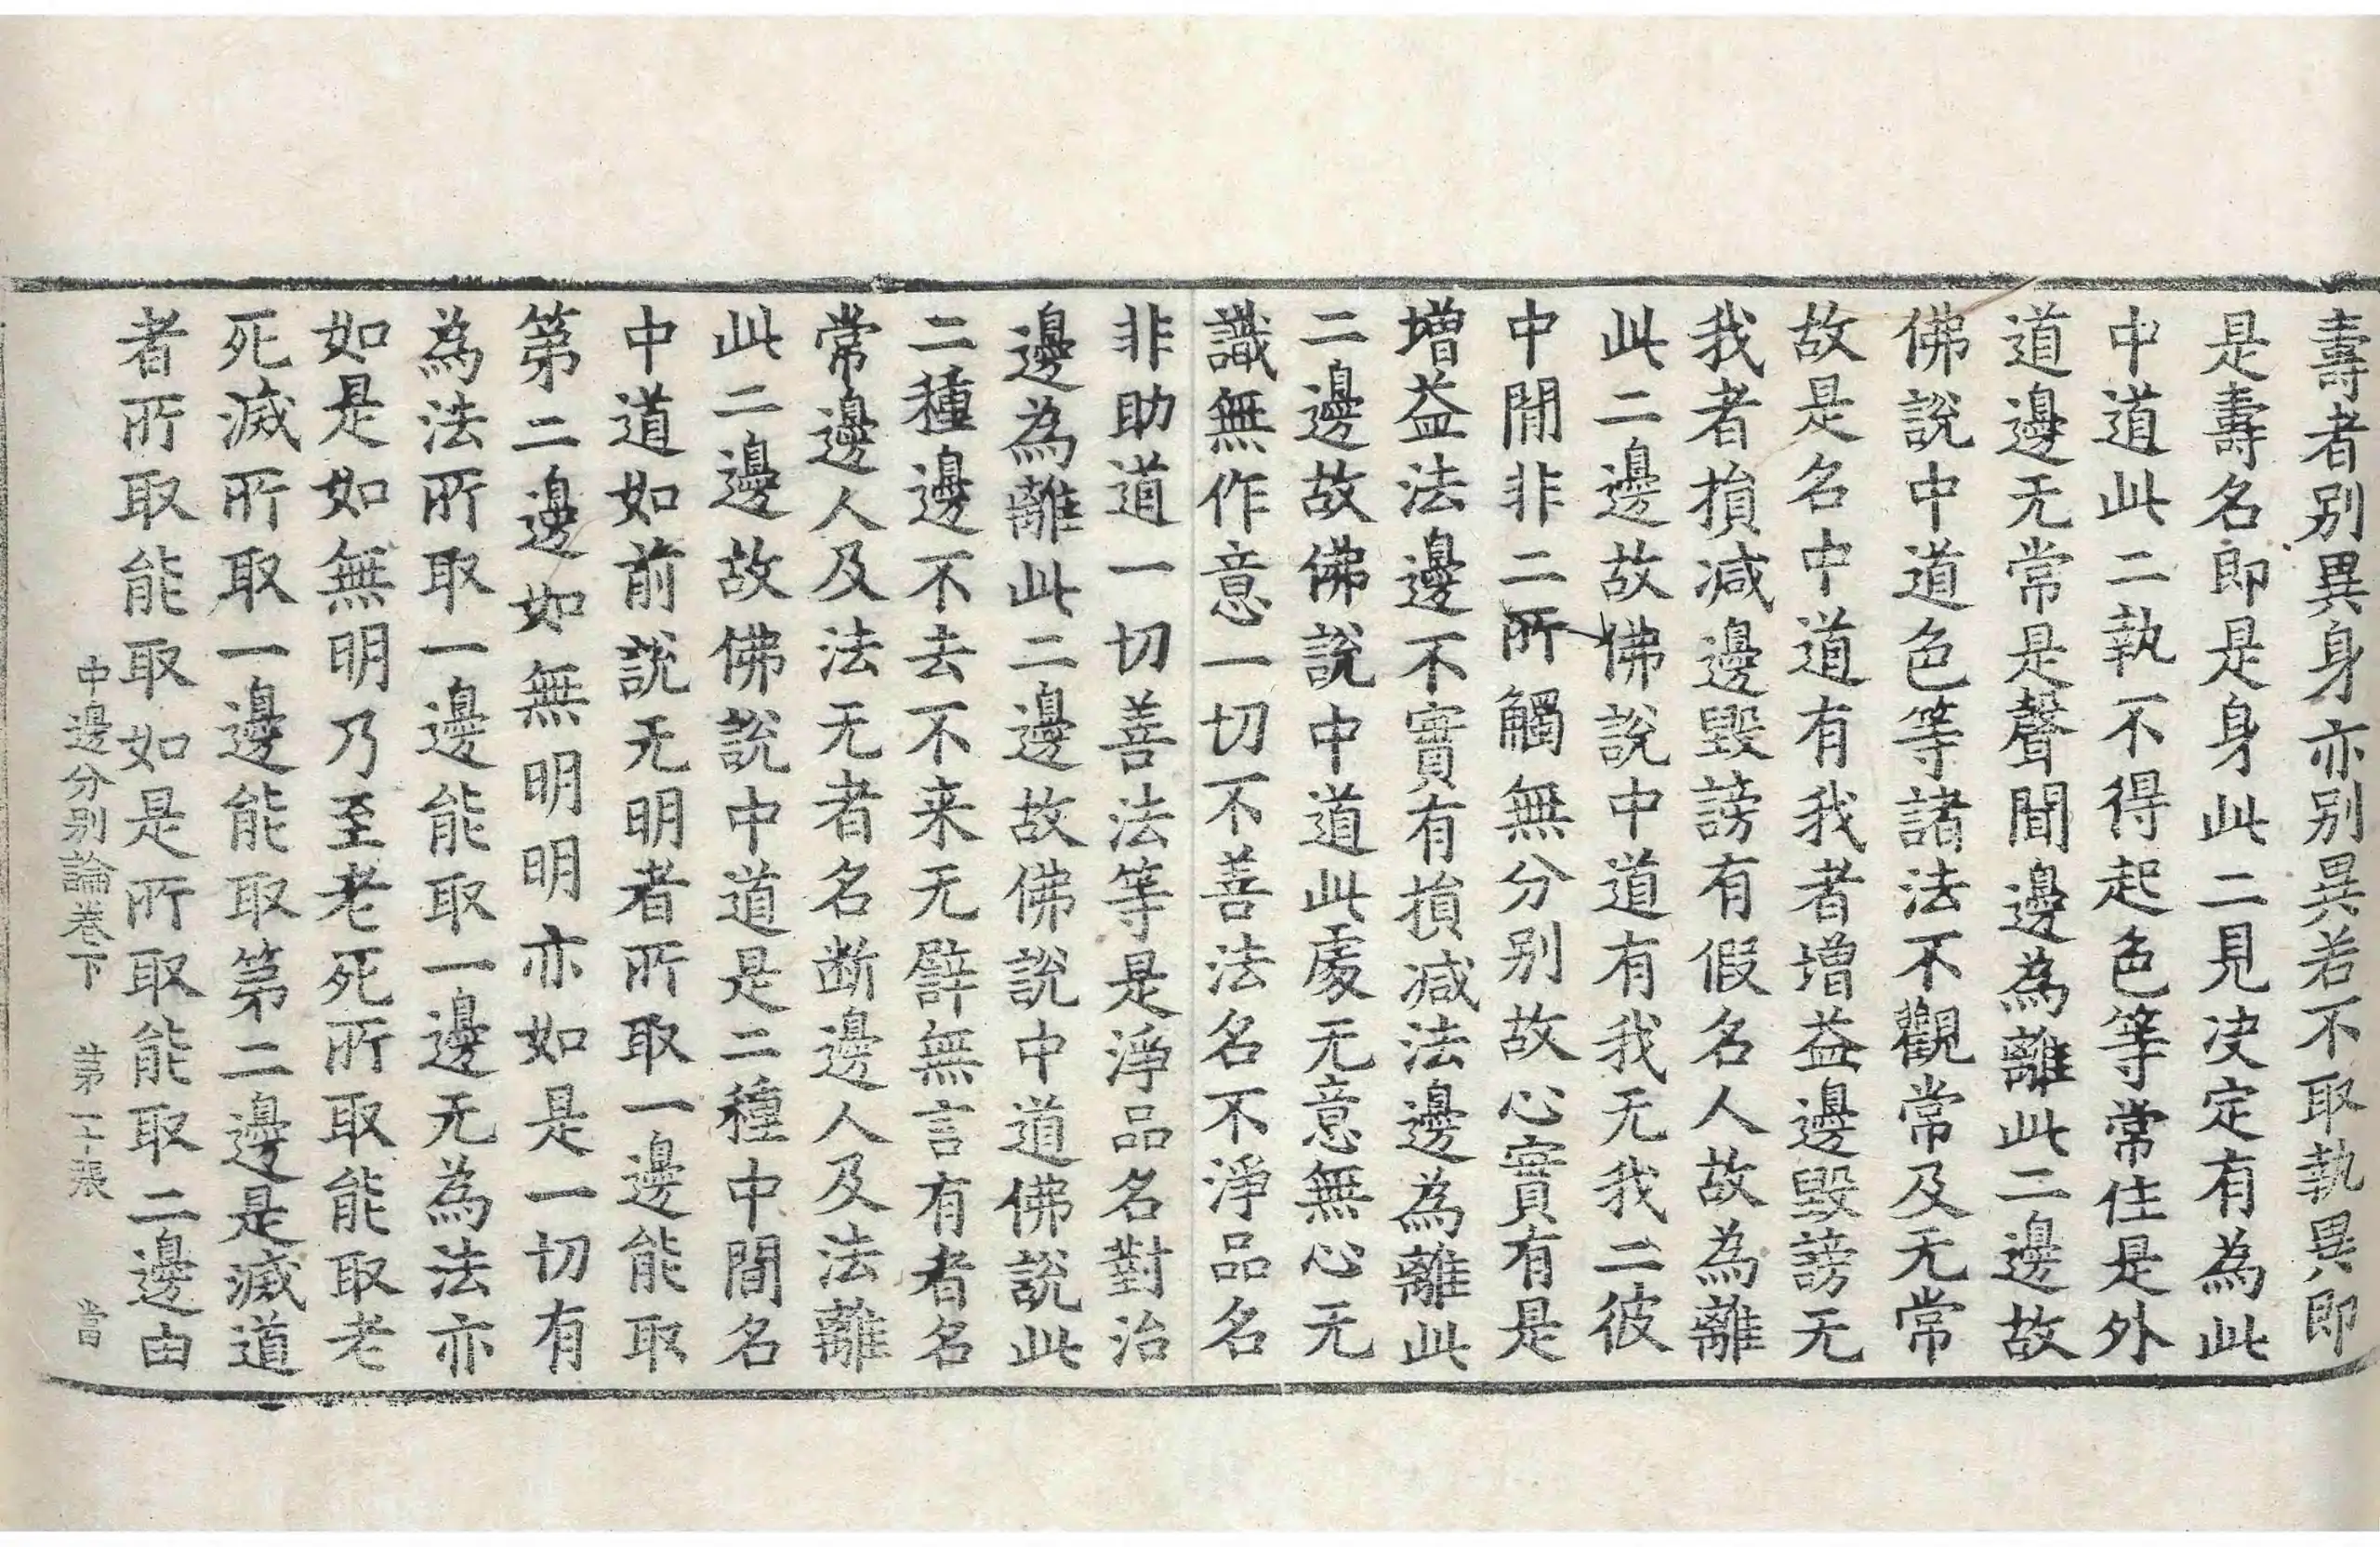 壽者別異身亦別異若不取執異即
是壽名即是身此二見决定有為此
中道此二執不得起色等常住是外
道邊无常是聲聞邊為離此二邊故
佛說中道色等諸法不觀常及无常
故是名中道有我者增益邊毀謗无
我者損減邊毀謗有假名人故為離
此二邊故佛說中道有我无我二彼
中間非二所觸無分別故心實有是
增益法邊不實有損减法邊為離此
二邊故佛說中道此處无意無心无
識無作意一切不善法名不淨品名
非助道一切善法等是淨品名對治
邊為離此二邊故佛說中道佛說此
二種邊不去不来无譬無言有者名
常邊人及法无者名断邊人及法離
此二邊故佛說中道是二種中間名
中道如前說无明者所取一邊能取
第二邊如無明明亦如是一切有
為法所取一邊能取一邊无為法亦
如是如無明乃至老死所取能取老
死滅所取一邊能取第二邊是滅道
者所取能取如是所取能取二邊由
中邊分別論卷下 第二十張 當